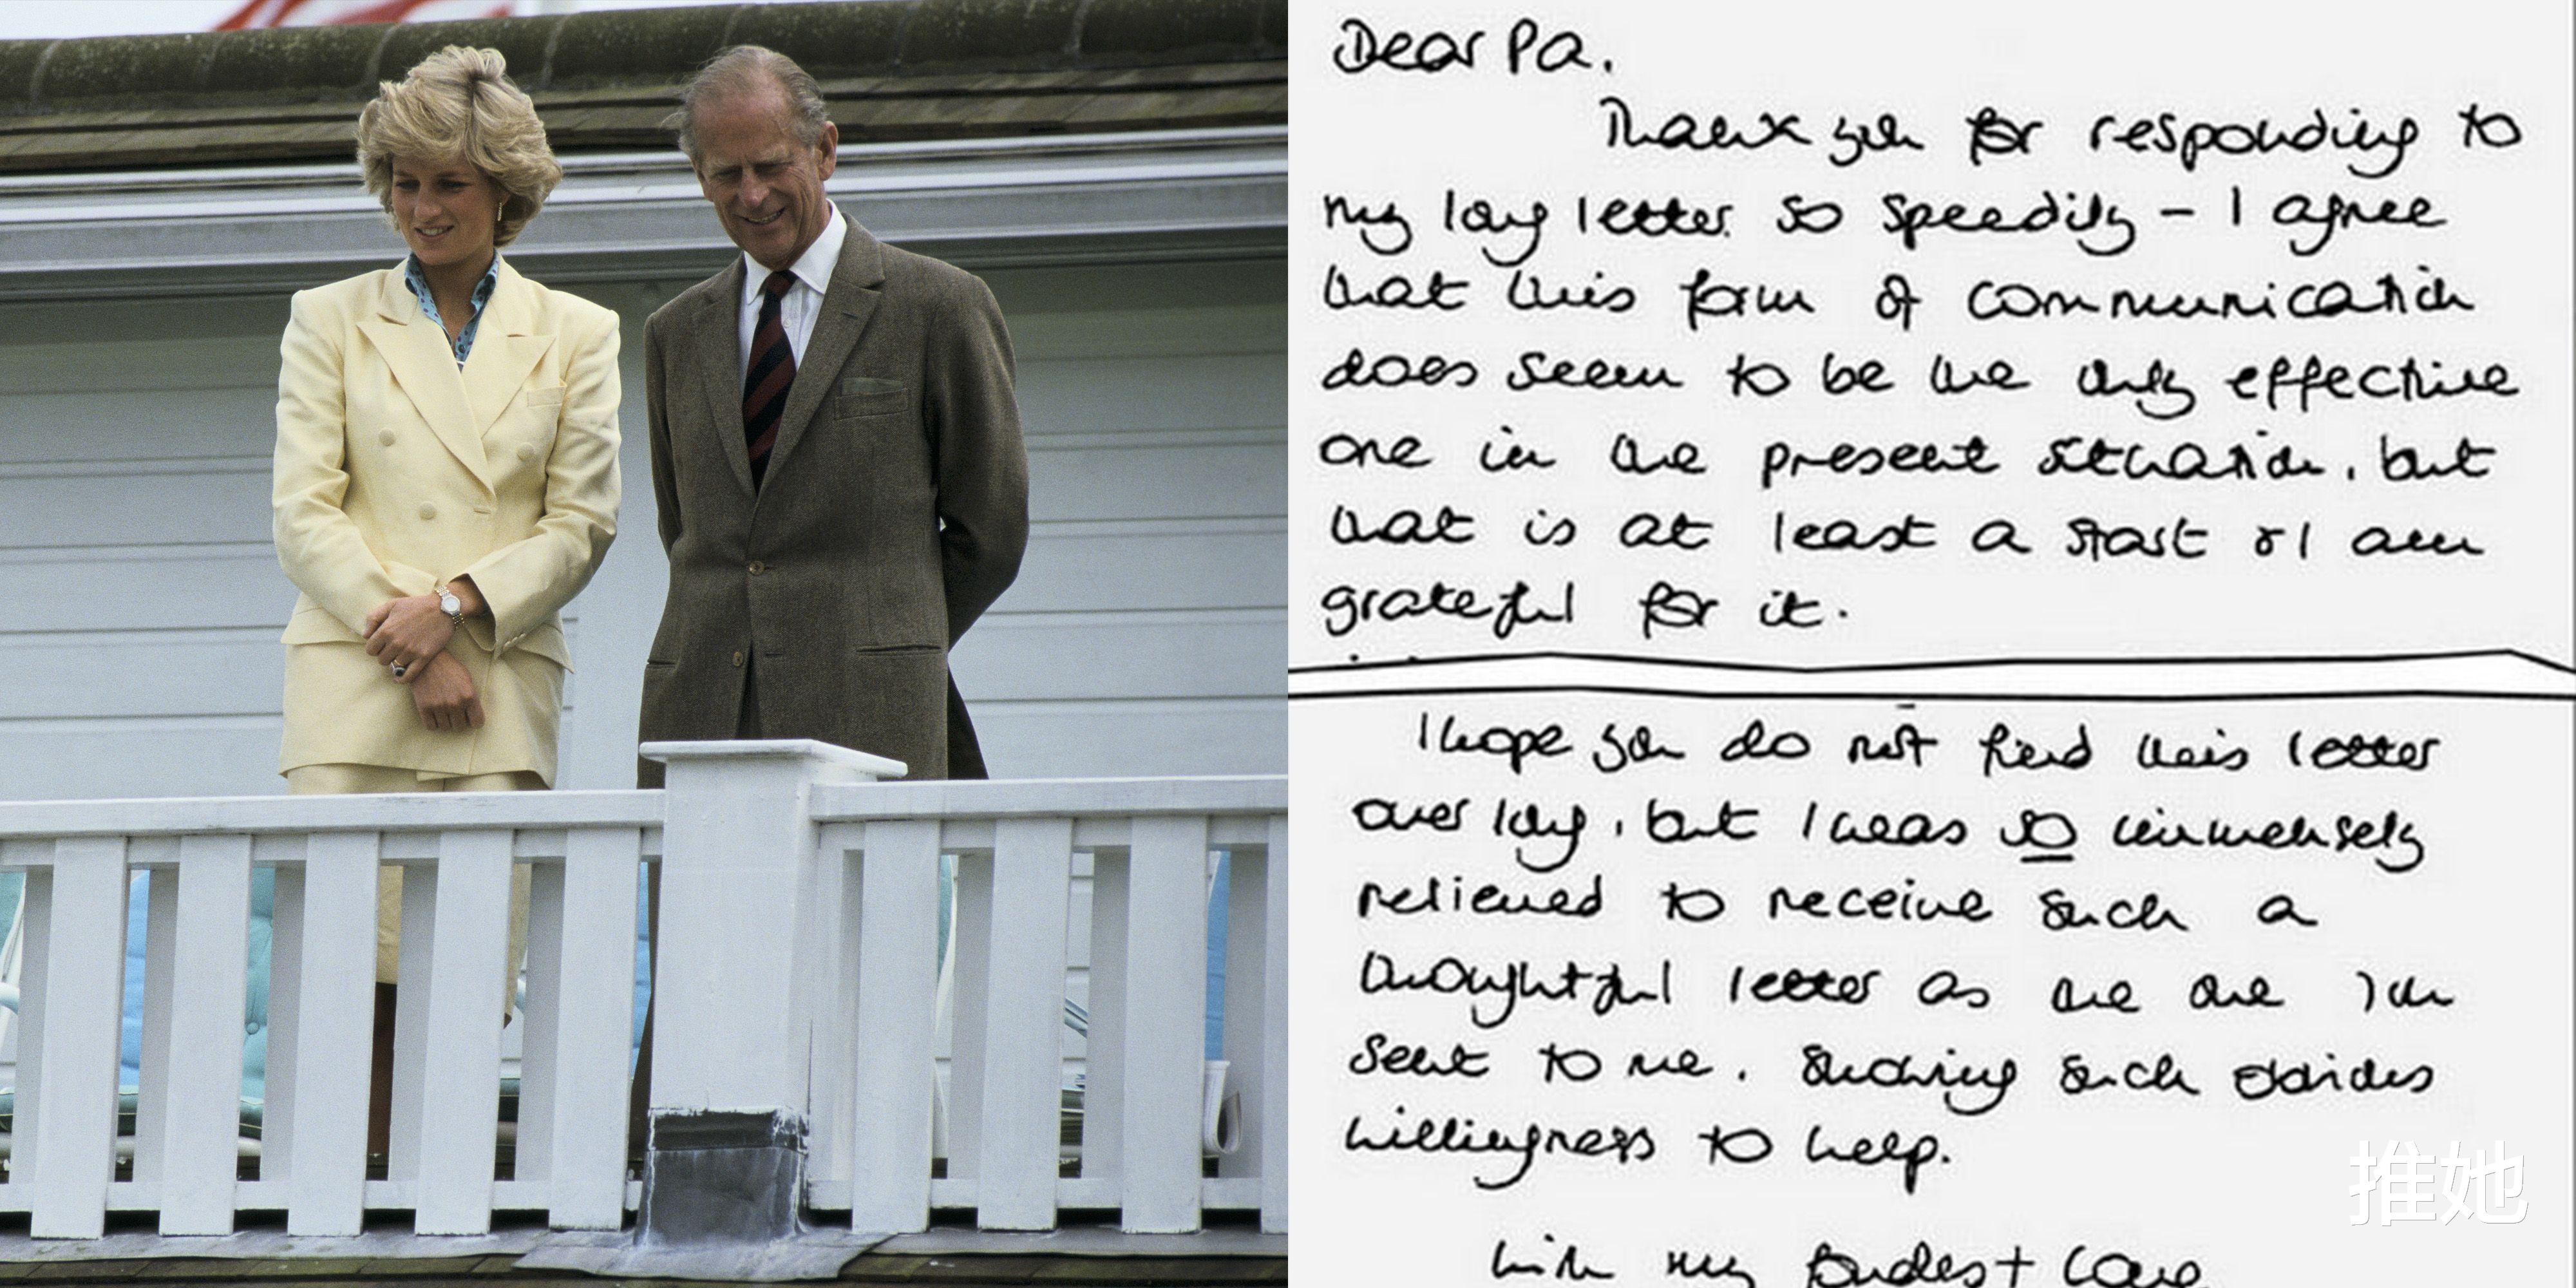 Dear Pa.
Thank you for responding to
my long letter so speedily – I agree
that this form of communication
does seem to be the only effective
one in the present situation, but
that is at least a start & I am
grateful for it.
I hope you do not find this letter
over long, but I was so immensely
relieved to receive such a
thoughtful letter as the one you
sent to me, showing such obvious
willingness to help.
with my fondest love
推她